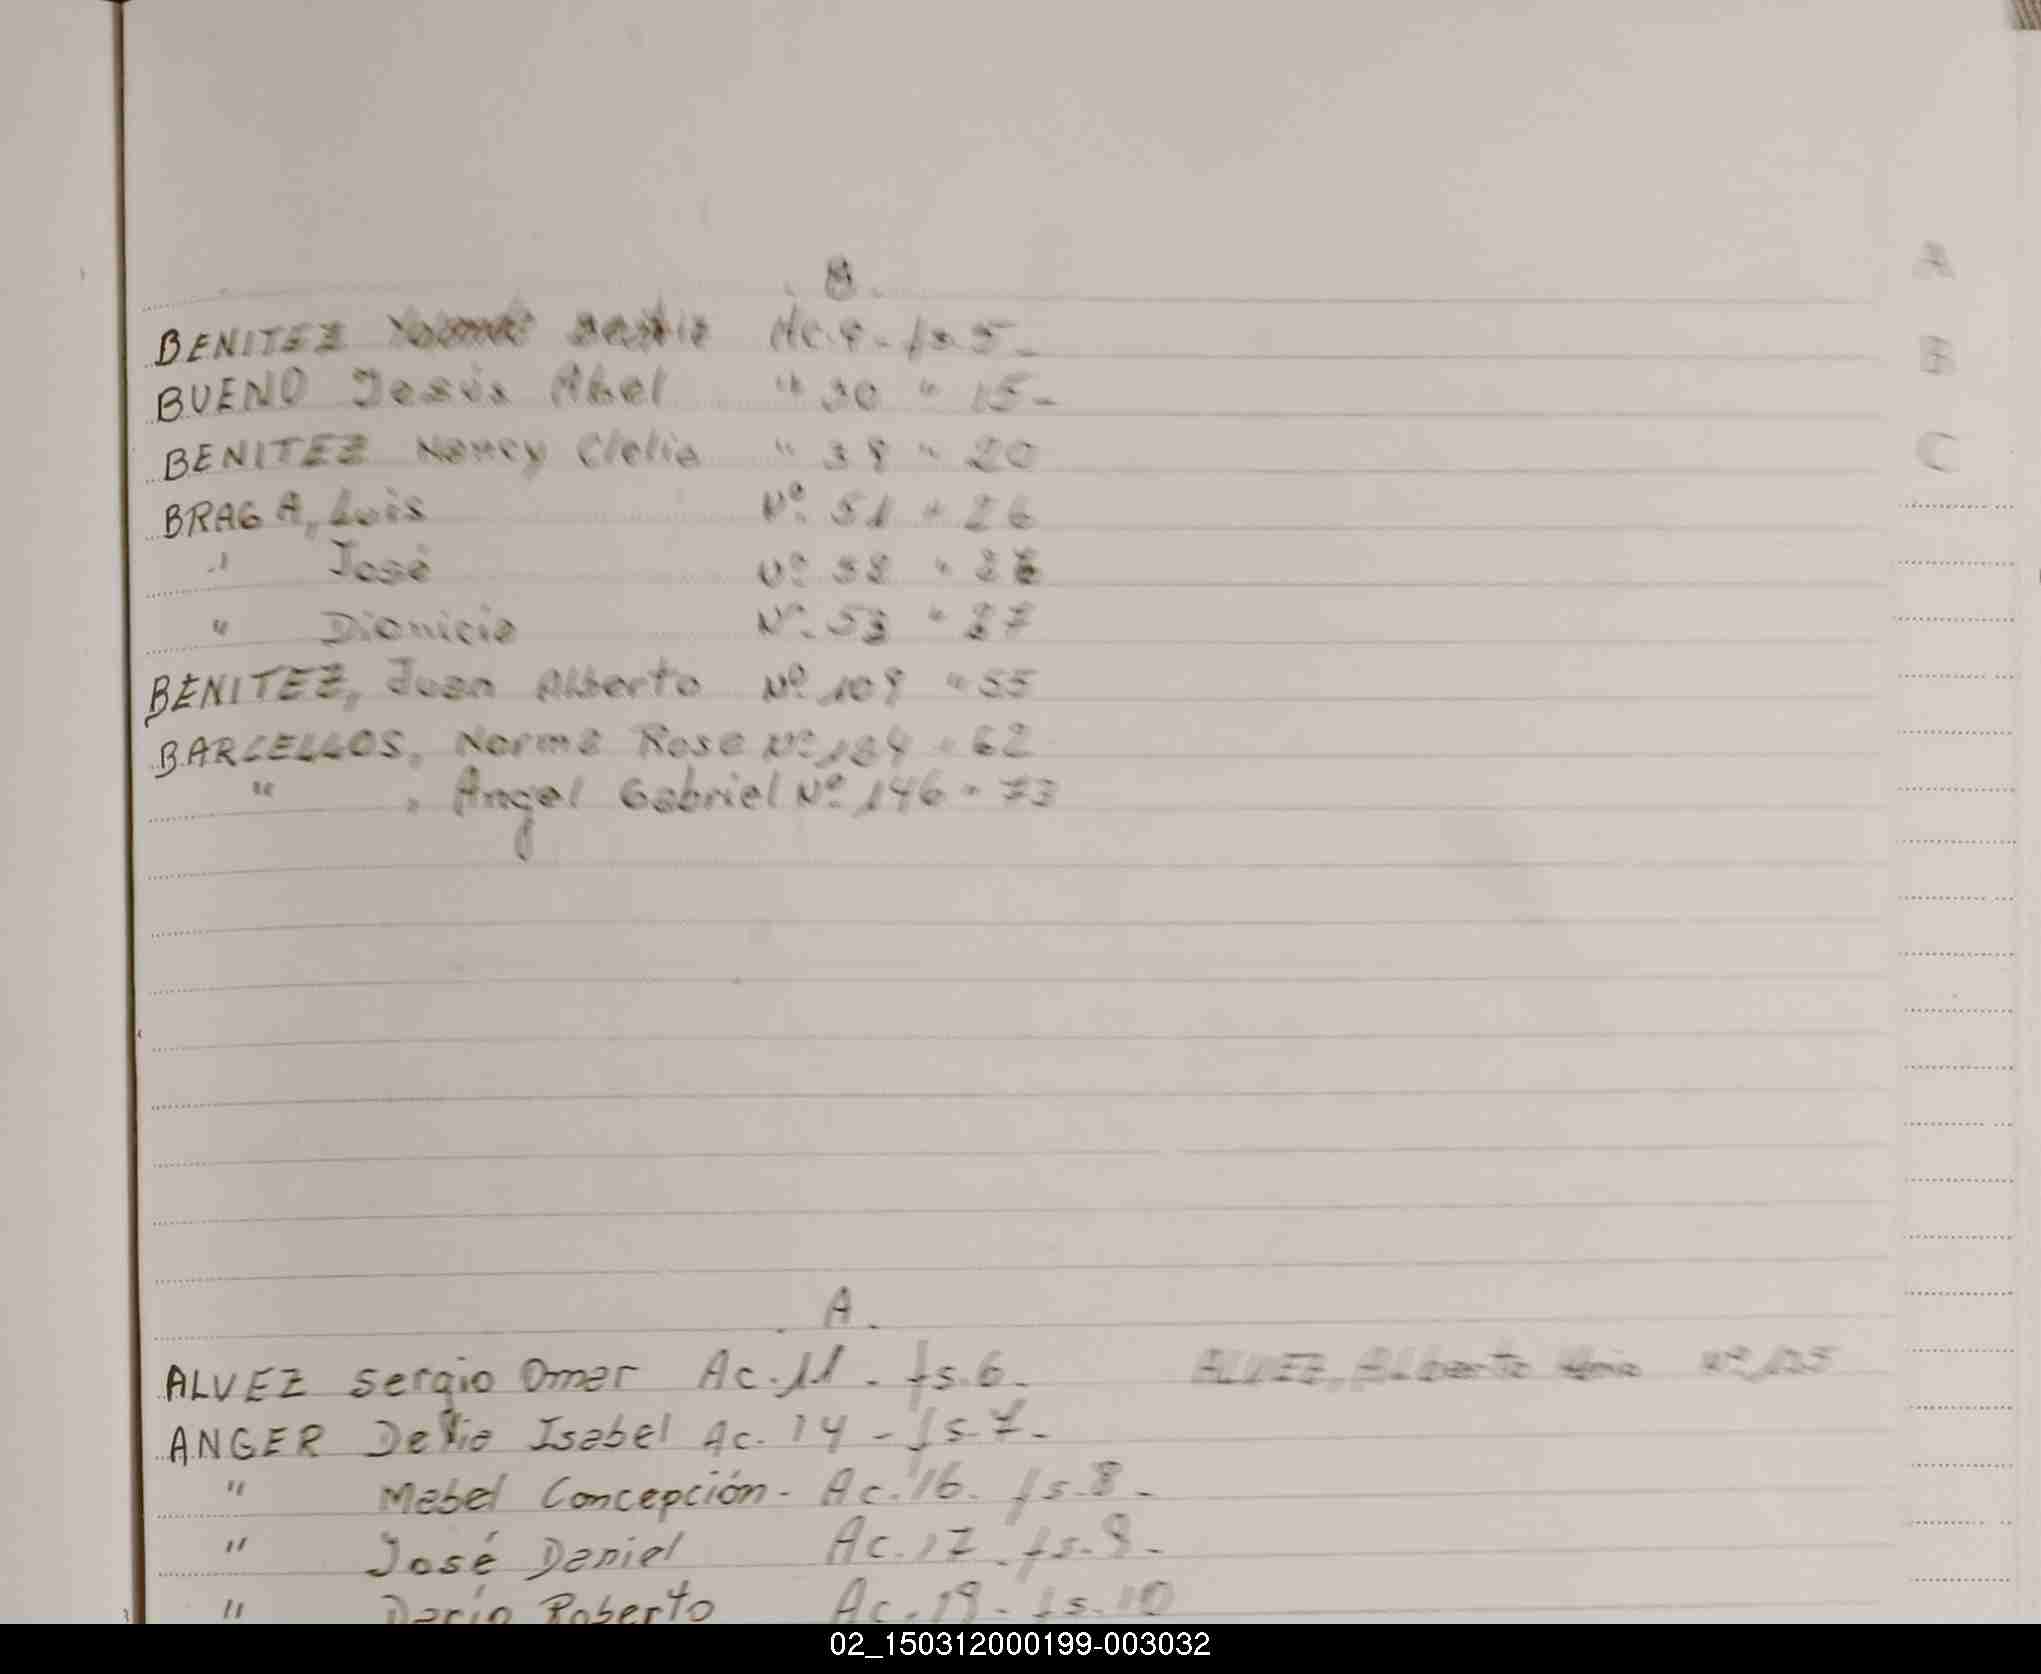 B.
BENITEZ Ac. 9 - fs. 5 -
BUENO Jesús Abel " 30 " 15 -
BENITEZ Nancy Clelia " 39 " 20
BRAGA, Luis Nº 51 " 26
" José Nº 52 " 26
" Dionicio Nº 53 " 27
BENITEZ, Juan Alberto Nº 109 " 55
BARCELLOS, Norma Rosa Nº 124 " 62
" , Angel Gabriel Nº 146 " 73
A
B
C
. A .
ALVEZ Sergio Omar Ac. 11 - fs. 6 - ALVEZ, Alberto Nº 125
ANGER Delia Isabel Ac. 14 - fs. 7 -
" Mabel Concepción - Ac. 16 - fs. 8 -
" José Daniel Ac. 17 - fs. 9 -
" Darío Roberto Ac. 19 - fs. 10
02_150312000199-003032